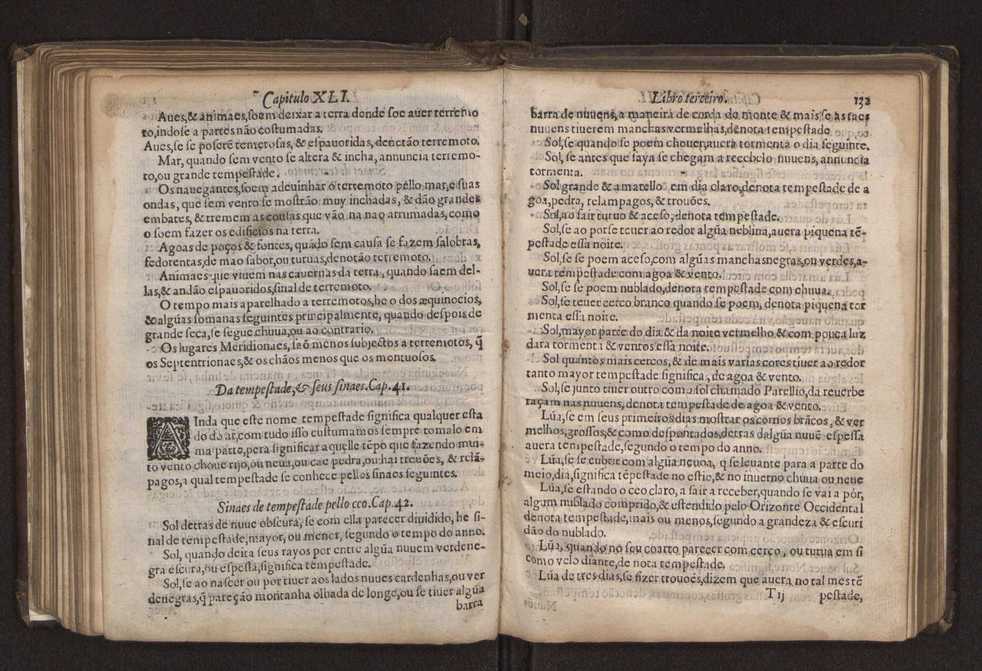 Capitulo XLI.
Aues,& animaes,soem deixar a terra donde soe auer terremo
to,indose a partes não costumadas.
Aues,se se poserē temerosas,& espauoridas,denotão terremoto.
Mar, quando sem vento se altera & incha, annuncia terremo-
to,ou grande tempestade.
Os nauegantes,soem adeuinhar o terremoto pello mar,e suas
ondas, que sem vento se mostrão muy inchadas, & dão grandes
embates, & tremem as cousas que vão na nao arrumadas, como
o soem fazer os edificios na terra.
Agoas de poços & fontes, quādo sem causa se fazem salobras,
fedorentas,de mao sabor,ou turuas,denotão terremoto.
Animaes que viuem nas cauernas da terra, quando saem del-
las,& andão espauoridos,sinal de terremoto.
O tempo mais aparelhado a terremotos,he o dos æquinocios,
& algũas somanas seguintes principalmente, quando despois de
grande seca, se segue chuua,ou ao contrario.
Os lugares Meridionaes, saõ menos subjectos a terremotos, q̃
os Septentrionaes,& os chãos menos que os montuosos.
Da tempestade,& seus sinaes.Cap.41.
AInda que este nome tempestade significa qualquer esta
do do ar,com tudo isso custumamos sempre tomalo em
ma parte,pera significar aquelle tẽpo que fazendo mui-
to vento choue rijo,ou neua,ou cae pedra,ou hai trouões, & relã-
pagos,a qual tempestade se conhece pellos sinaes seguintes.
Sinaes de tempestade pello ceo.Cap.42.
Sol detras de nuue obscura, se com ella parecer diuidido, he si-
nal de tempestade,mayor, ou menor, segundo o tempo do anno.
Sol, quando deita seus rayos por entre algũa nuuem verdene-
gra escura,ou espessa,significa tempestade.
Sol,se ao nascer ou por tiuer aos lados nuues cardenhas,ou ver
denegras,q̃ pareção montanha olhada de longe,ou se tiuer algũa
barra
Libro terceiro. 132
barra de nuuens, a maneira de corda do monte & mais se as taes
nuuens tiuerem manchas vermelhas,denota tempestade.
Sol,se quando se poem chouer,auera tormenta o dia seguinte.
Sol, se antes que saya se chegam a recebelo nuuens, annuncia
tormenta.
Sol grande & amarello em dia claro,denota tempestade de a
goa,pedra, relampagos, & trouões.
Sol,ao sair turuo & aceso,denota tempestade.
Sol,se ao por se teuer ao redor algũa neblina,auera piquena tē-
pestade essa noite.
Sol,se se poem aceso,com algũas manchas negras,ou verdes,a-
uera tempestade com agoa & vento.
Sol,se se poem nublado,denota tempestade com chuua.
Sol,se teuer cerco branco quando se poem, denota piquena tor
menta essa noite.
Sol,mayor parte do dia & da noite vermelho & com pouca luz
dara tormenta & ventos essa noite.
Sol quantos mais cercos, & de mais varias cores tiuer ao redor
tanto mayor tempestade significa, de agoa & vento.
Sol,se junto tiuer outro como sol chamado Parelio,da reuerbe
raçam nas nuuens, denota tempestade de agoa & vento.
Lũa, se em seus primeiros dias mostrar os cornos brãcos, & ver
melhos,grossos,& como despontados,detras dalgũa nuuē espessa
auera tempestade,segundo o tempo do anno.
Lũa,se se cubrir com algũa neuoa, q̃ se leuante para a parte do
meio,dia,significa tēpestade no estio,& no inuerno chuua ou neue
Lũa,se estando o ceo claro, a sair a receber,quando se vai a pór,
algum nublado comprido,& estendido pelo Orizonte Occidental
denota tempestade,mais ou menos,segundo a grandeza & escuri
dão do nublado.
Lũa, quando no seu coarto parecer com cerco, ou turua em si
como velo diante,denota tempestade.
Lũa de tres dias,se fizer trouoēs,dizem que auera no tal mes tē
Tij pestade,